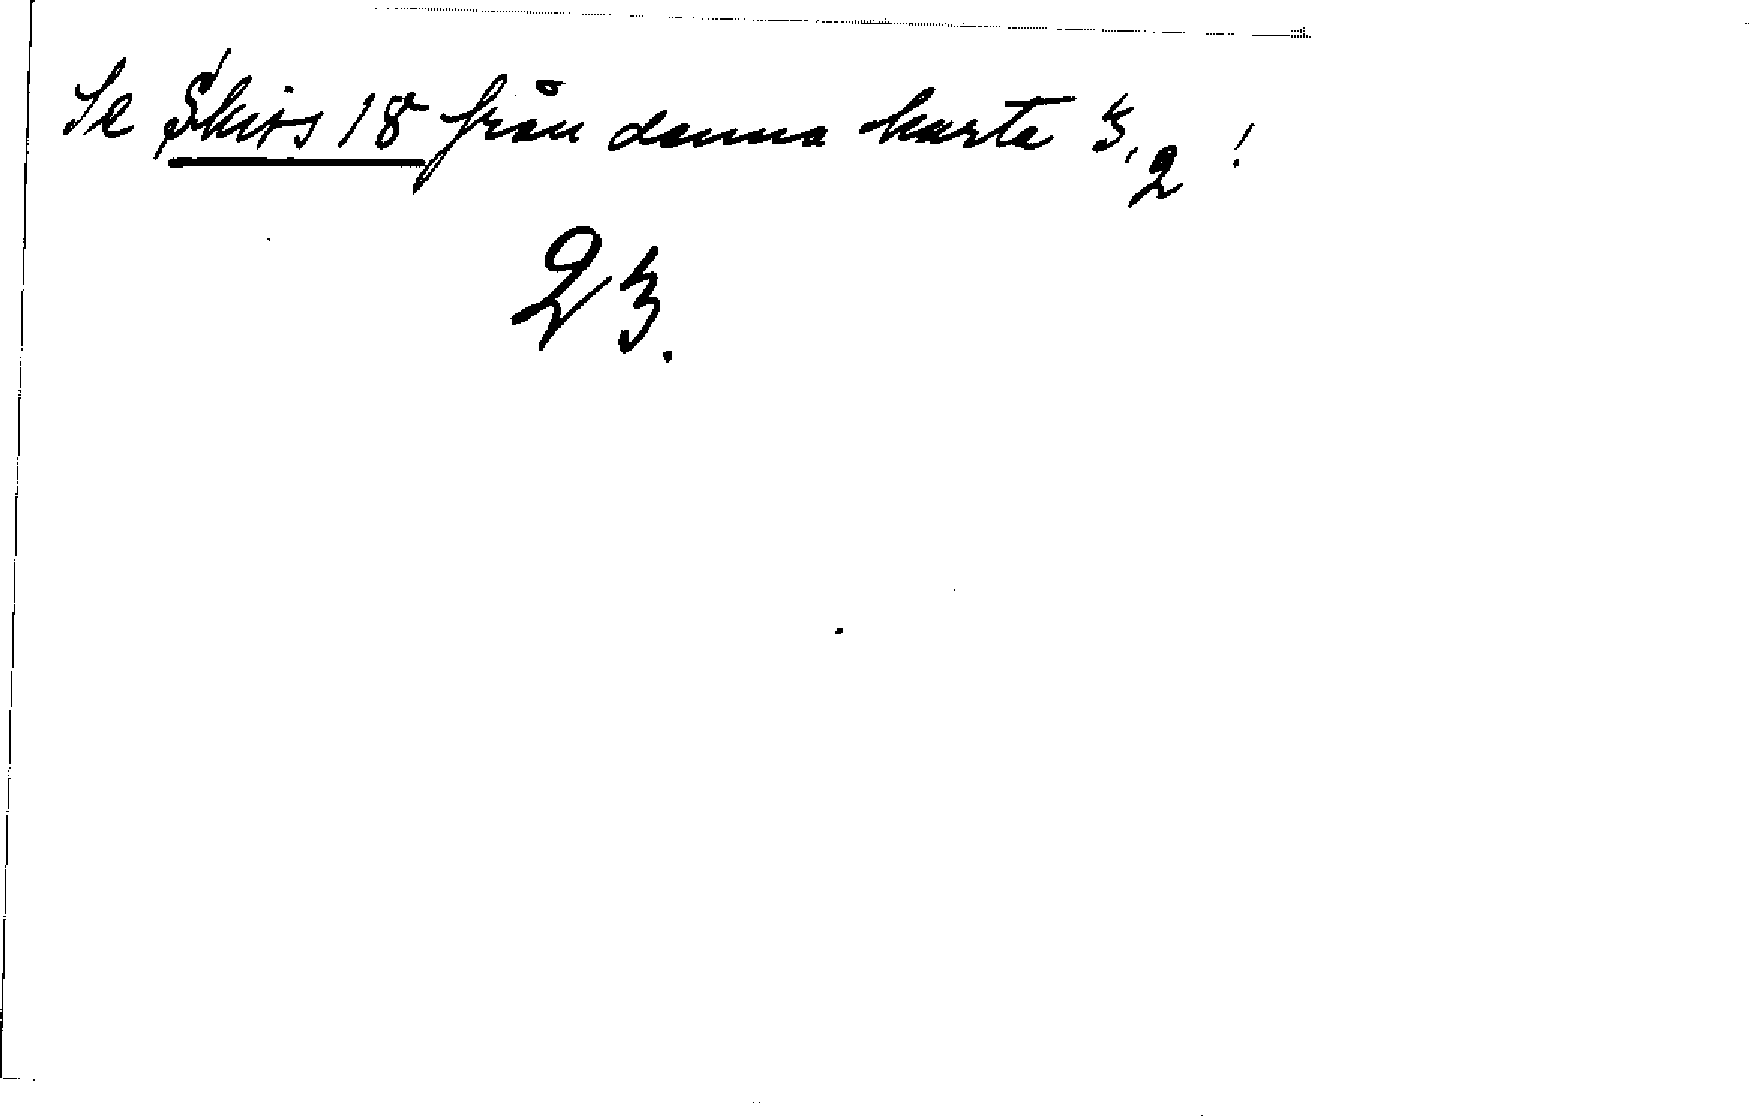 Se Skiss 18 från denna karta 3,2 !
23.